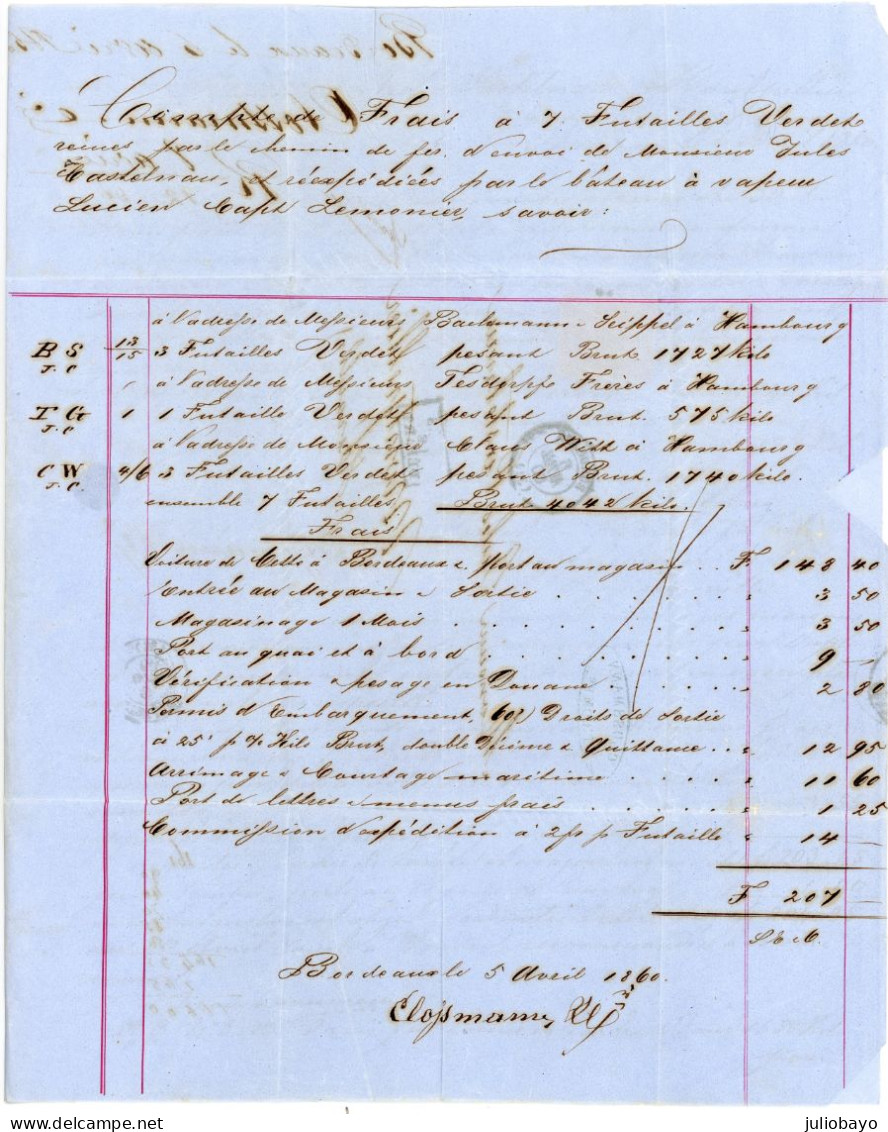 Compte de Frais à 7 Futailles Verdet
reçues par le chemin de fer d'envoi de Monsieur Jules
Castelnau, et réexpédiées par le bateau à vapeur
Lucien Capt Lemonier, savoir:
à l'adresse de Messieurs Bachmann & Seippel à Hambourg
B S 13/15 3 Futailles Verdet pesant Brut 1727 kilo
J. C
à l'adresse de Messieurs Tesdorpf Frères à Hambourg
T G 1 1 Futaille Verdet pesant Brut. 575 kilo
J. C
à l'adresse de Monsieur Claus Witt à Hambourg
C W 4/6 3 Futailles Verdet pesant Brut. 1740 kilo.
J. C.
ensemble 7 Futailles Brut 4042 kilo.
Frais
Voiture de Cette à Bordeaux & port au magasin . . F 143 40
Entrée au Magasin & Sortie . . . . . . " 3 50
Magasinage 1 Mois . . . . . . . . " 3 50
Port au quai et à bord . . . . . . . . " 9 —
Vérification & pesage en Douane . . . . . . " 2 80
Permis d'Embarquement, Droits de Sortie
à 25c p % Kilo Brut, double Décime & Quittance . . " 12 95
Arrimage & Courtage maritime . . . . . " 11 60
Port de lettres & menus frais . . . . . . " 1 25
Commission d'expédition à 2fs p Futaille " 14 —
F 207 —
S. E. & O.
Bordeaux le 5 Avril 1860.
Clossmann
juliobayo